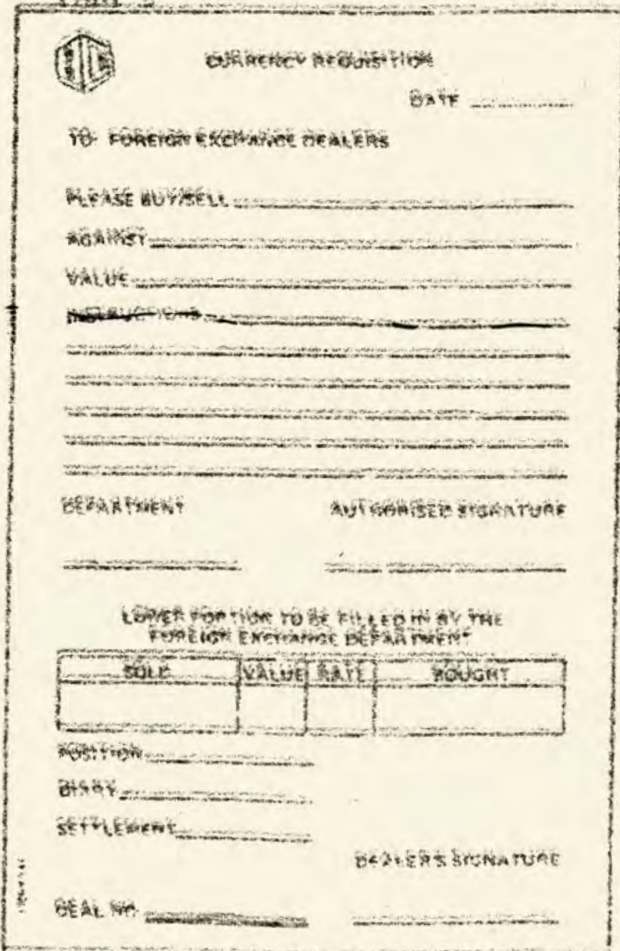 CURRENCY REQUISITION
DATE
TO: FOREIGN EXCHANGE DEALERS
PLEASE BUY/SELL
AGAINST
VALUE
INSTRUCTIONS
DEPARTMENT AUTHORISED SIGNATURE
LOWER PORTION TO BE FILLED IN BY THE
FOREIGN EXCHANGE DEPARTMENT
SOLD VALUE RATE BOUGHT
POSITION
DIARY
SETTLEMENT
DEALERS SIGNATURE
DEAL NO.